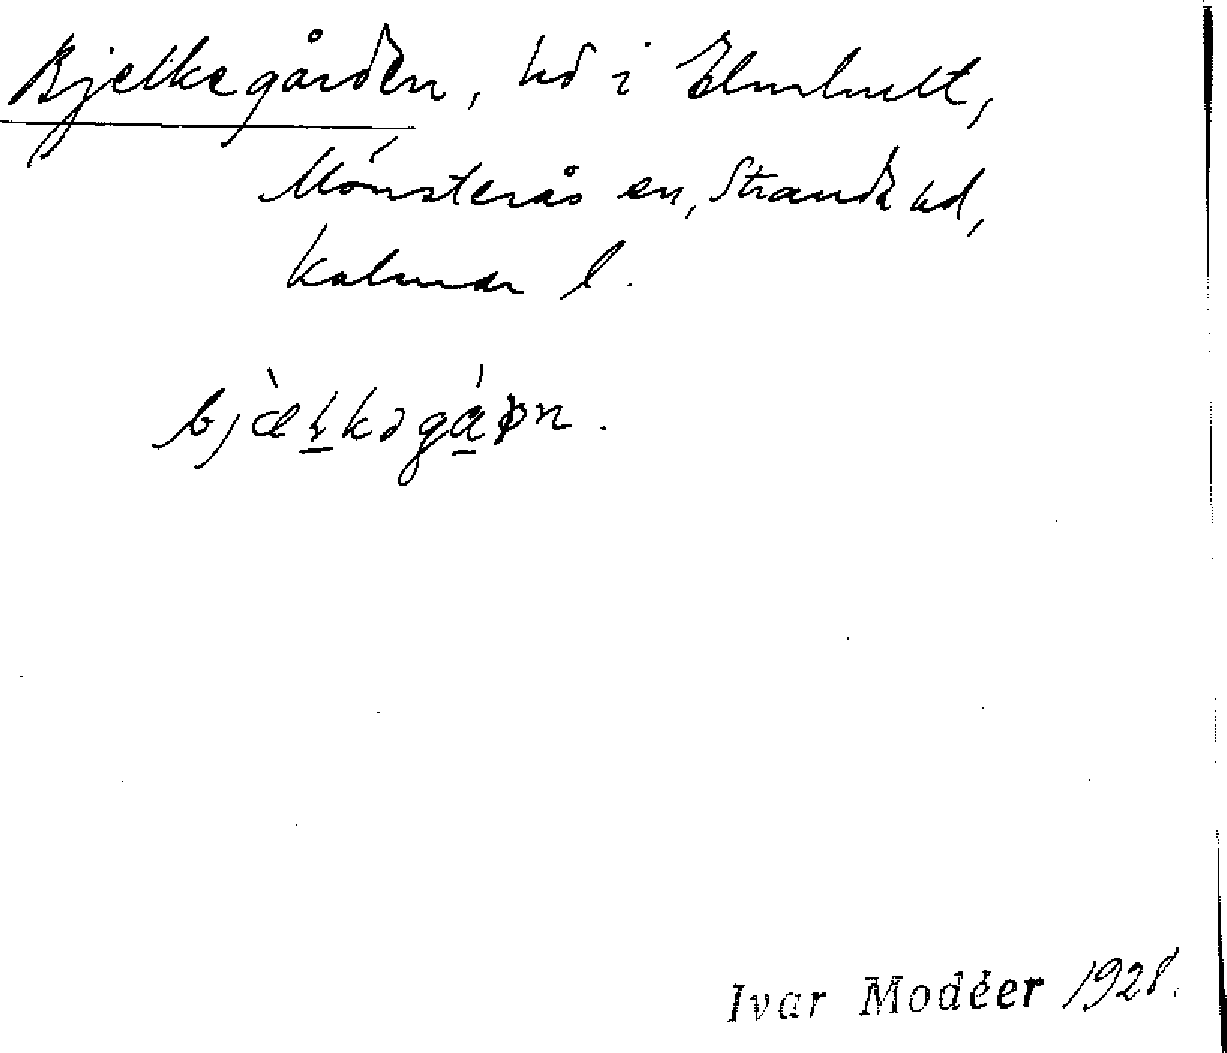 Bjelkegården, hd i Elmhult,
Mönsterås sn, Stranda hd,
Kalmar l.
Ivar Modéer 1928.